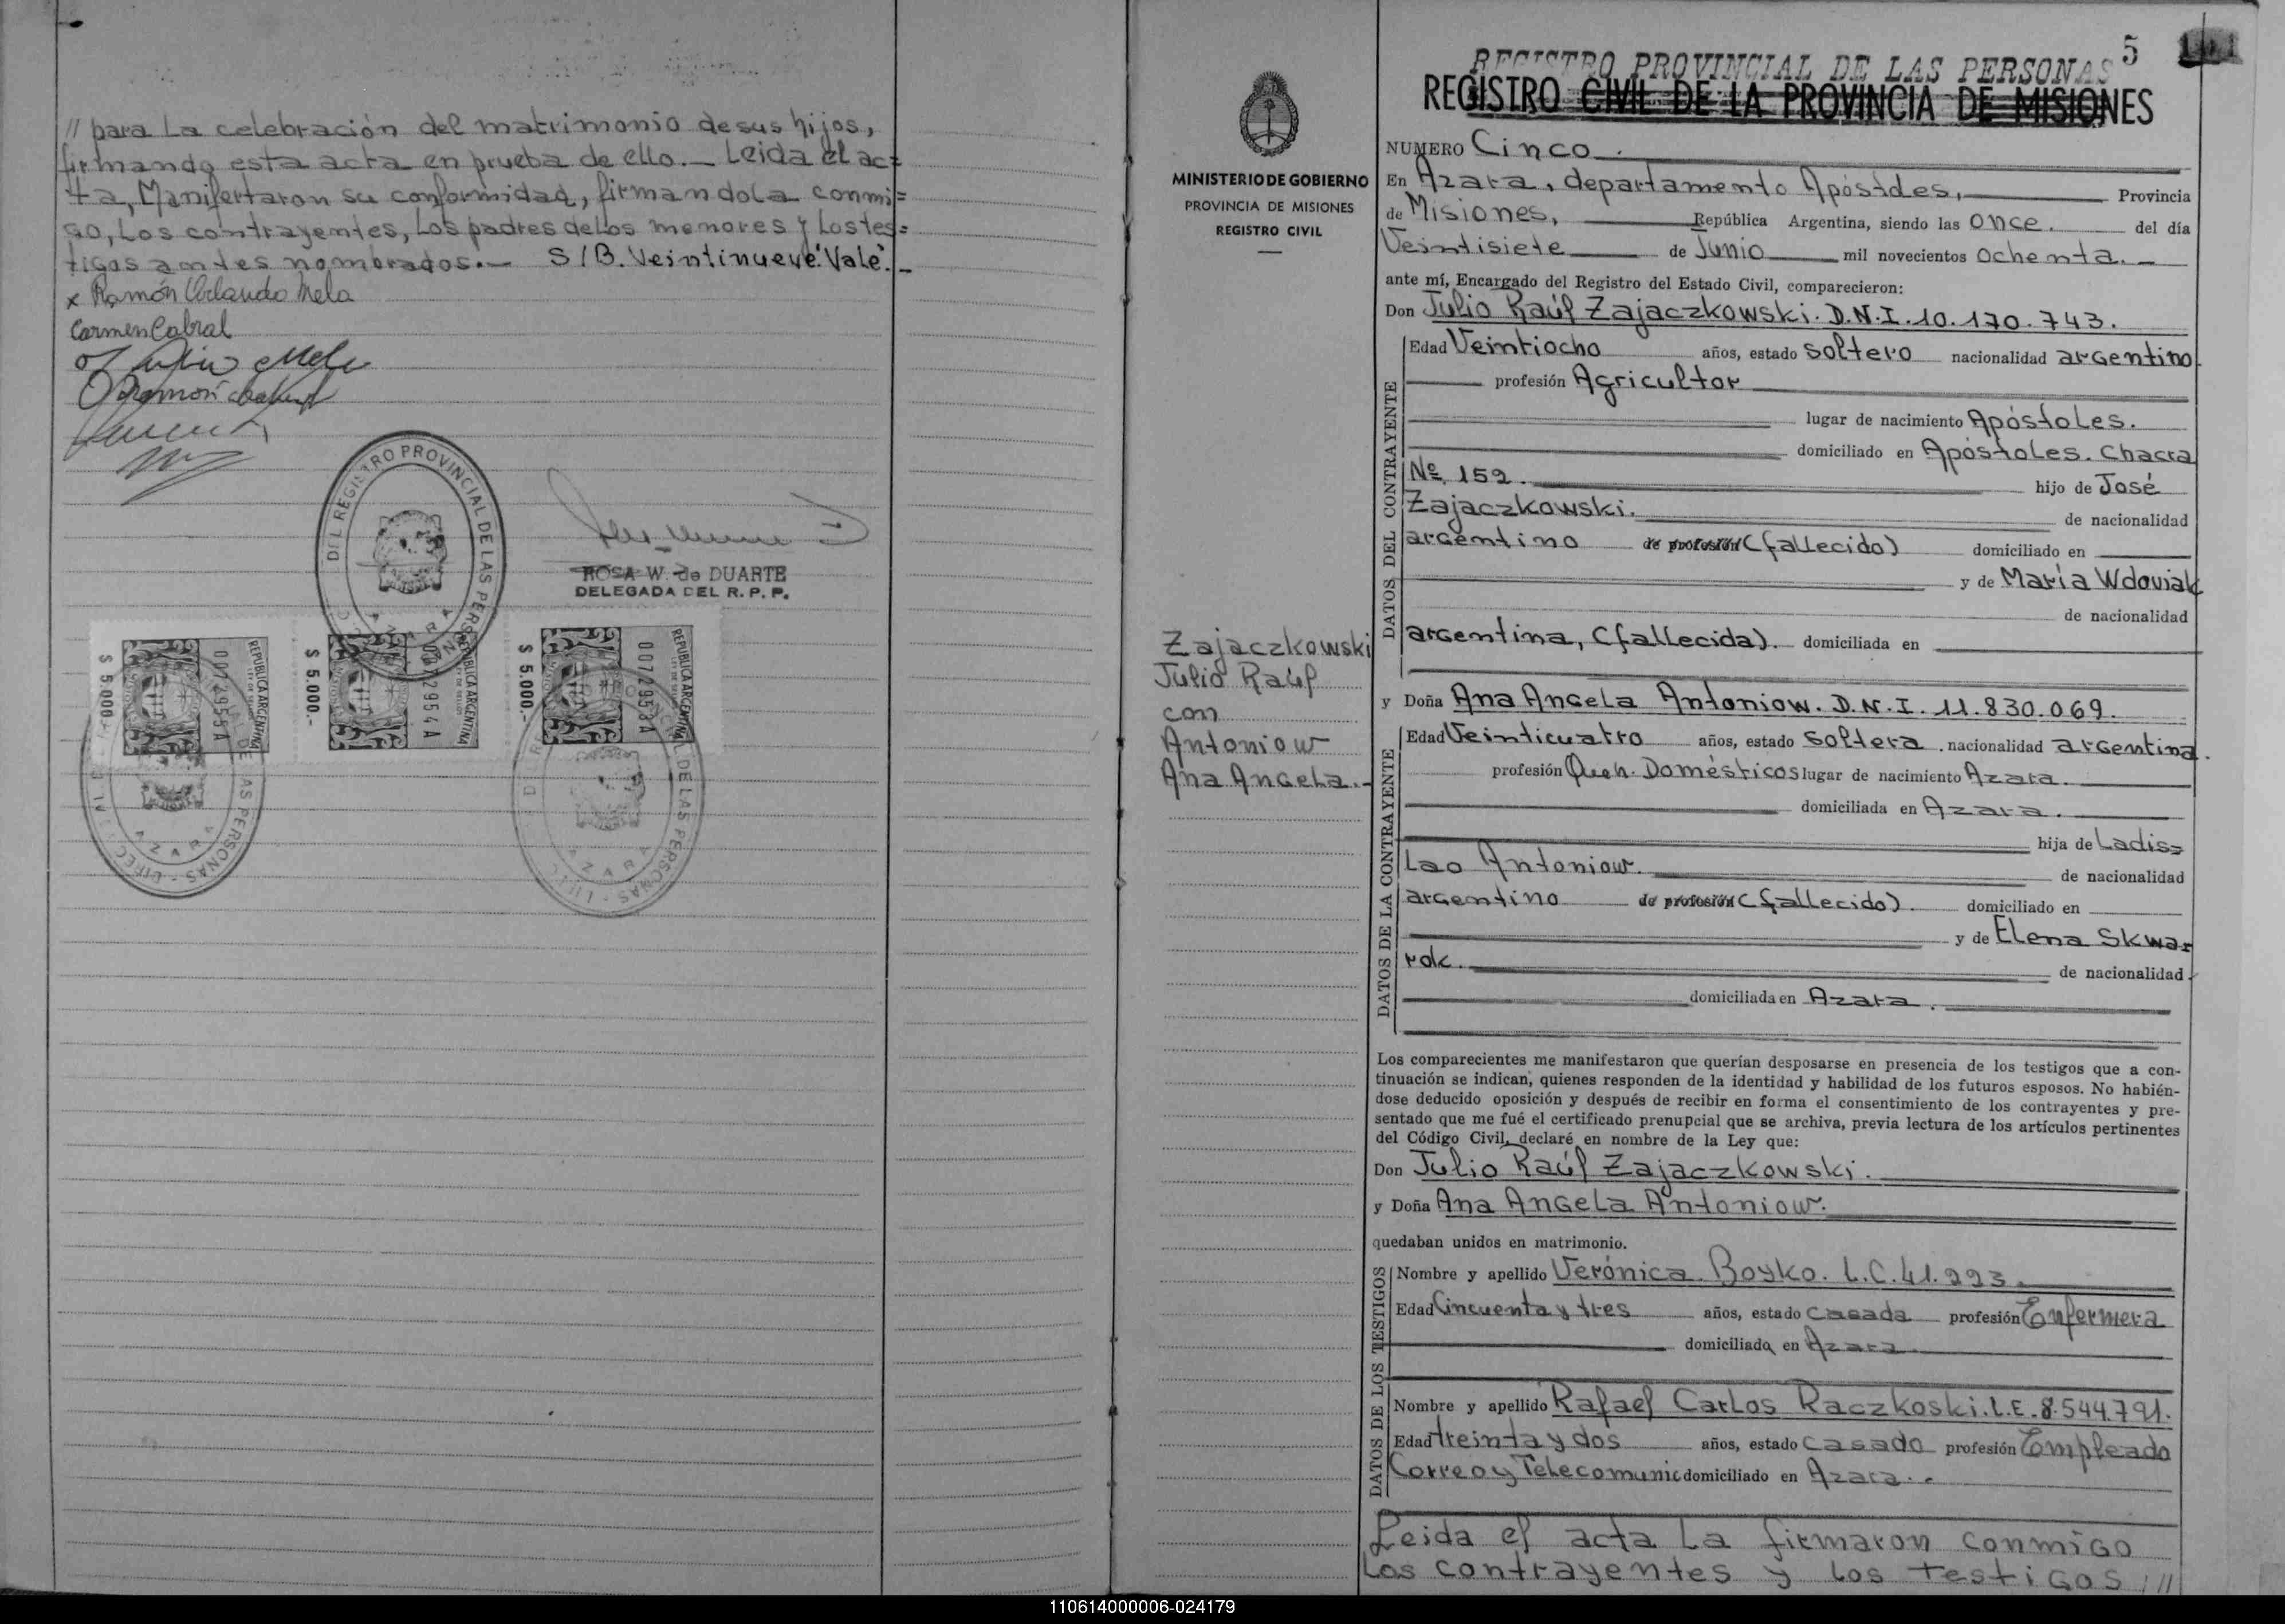 // para La celebración del matrimonio de sus hijos,
firmando esta acta en prueba de ello.— Leida el ac=
ta, Manifertaron su conformidad, firmandola conmi=
go, Los contrayentes, Los padres de Los menores y Los tes=
tigos antes nombrados.— S/B. Veintinueve." Vale".—
x Ramón Orlando Mela
Carmen Cabral
DEL REGISTRO PROVINCIAL DE LAS PERSONAS
AZARA
ROSA W. de DUARTE
DELEGADA DEL R. P. P.
$ 5.000.-
0072955A
REPUBLICA ARGENTINA
$ 5.000.-
0072954A
REPUBLICA ARGENTINA
$ 5.000.-
0072953A
REPUBLICA ARGENTINA
DE LAS PERSONAS
AZARA
DE LAS PERSONAS
AZARA
5
REGISTRO PROVINCIAL DE LAS PERSONAS
REGISTRO CIVIL DE LA PROVINCIA DE MISIONES
MINISTERIO DE GOBIERNO
PROVINCIA DE MISIONES
REGISTRO CIVIL
Zajaczkowski
Julio Raúl
con
Antoniow
Ana Angela.-
NUMERO Cinco.
En Azara, departamento Apóstoles, Provincia
de Misiones, República Argentina, siendo las once. del día
Veintisiete de Junio mil novecientos ochenta.—
ante mí, Encargado del Registro del Estado Civil, comparecieron:
Don Julio Raúl Zajaczkowski. D.N.I. 10.170.743.
DATOS DEL CONTRAYENTE
Edad Veintiocho años, estado soltero nacionalidad argentino
profesión Agricultor
lugar de nacimiento Apóstoles.
domiciliado en Apóstoles. Chacra
Nº 159. hijo de José
Zajaczkowski. de nacionalidad
argentino de profesión (fallecido) domiciliado en
y de María Wdoviak
de nacionalidad
argentina, (fallecida). domiciliada en
y Doña Ana Angela Antoniow. D.N.I. 11.830.069.
DATOS DE LA CONTRAYENTE
Edad Veinticuatro años, estado soltera. nacionalidad argentina.
profesión Queh. Domésticos lugar de nacimiento Azara.
domiciliada en Azara.
hija de Ladis=
Lao Antoniow. de nacionalidad
argentino de profesión (fallecido). domiciliado en
y de Elena Skwa=
rok. de nacionalidad
domiciliada en Azara.
Los comparecientes me manifestaron que querían desposarse en presencia de los testigos que a con-
tinuación se indican, quienes responden de la identidad y habilidad de los futuros esposos. No habién-
dose deducido oposición y después de recibir en forma el consentimiento de los contrayentes y pre-
sentado que me fué el certificado prenupcial que se archiva, previa lectura de los artículos pertinentes
del Código Civil, declaré en nombre de la Ley que:
Don Julio Raúl Zajaczkowski.
y Doña Ana Angela Antoniow.
quedaban unidos en matrimonio.
DATOS DE LOS TESTIGOS
Nombre y apellido Verónica Boyko. L.C. 41.993.
Edad Cincuenta y tres años, estado casada profesión Enfermera
domiciliada en Azara
Nombre y apellido Rafael Carlos Raczkoski. L.E. 8.544.791.
Edad treinta y dos años, estado casado profesión Empleado
Correo y Telecomunic domiciliado en Azara..
Leida el acta La firmaron conmigo
Los contrayentes y Los testigos,//
110614000006-024179